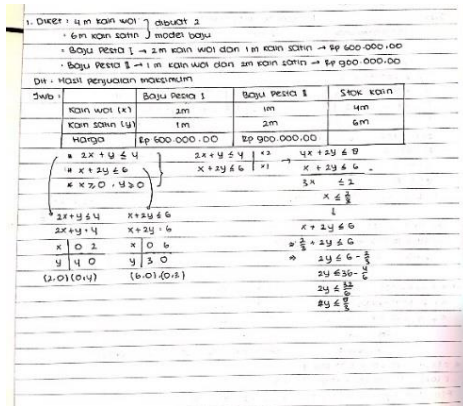 1. Diket : 4 m kain wol } dibuat 2
• 6m kain satin } model baju
- Baju Pesta I → 2m kain wol dan 1m kain satin → Rp 600.000,00
• Baju Pesta II → 1 m kain wol dan 2m kain satin → Rp 900.000,00
Dit : Hasil penjualan maksimum
Jwb :
Baju Pesta I Baju Pesta II Stok kain
Kain wol (x) 2m 1m 4m
Kain satin (y) 1m 2m 6m
Harga Rp 600.000.00 Rp 900.000.00
* 2x + y ≤ 4
* x + 2y ≤ 6
* x ≥ 0 , y ≥ 0
2x + y ≤ 4 | x2
x + 2y ≤ 6 | x1
→ 4x + 2y ≤ 8
x + 2y ≤ 6 -
3x ≤ 2
x ≤ 2/3
↓
x + 2y ≤ 6
⇒ 2/3 + 2y ≤ 6
⇒ 2y ≤ 6 - 2/3
2y ≤ 36 -
2y ≤
2x + y ≤ 4 x + 2y ≤ 6
2x + y = 4 x + 2y = 6
x | 0 2 x | 0 6
y | 4 0 y | 3 0
(2,0) (0,4) (6,0) (0,3)